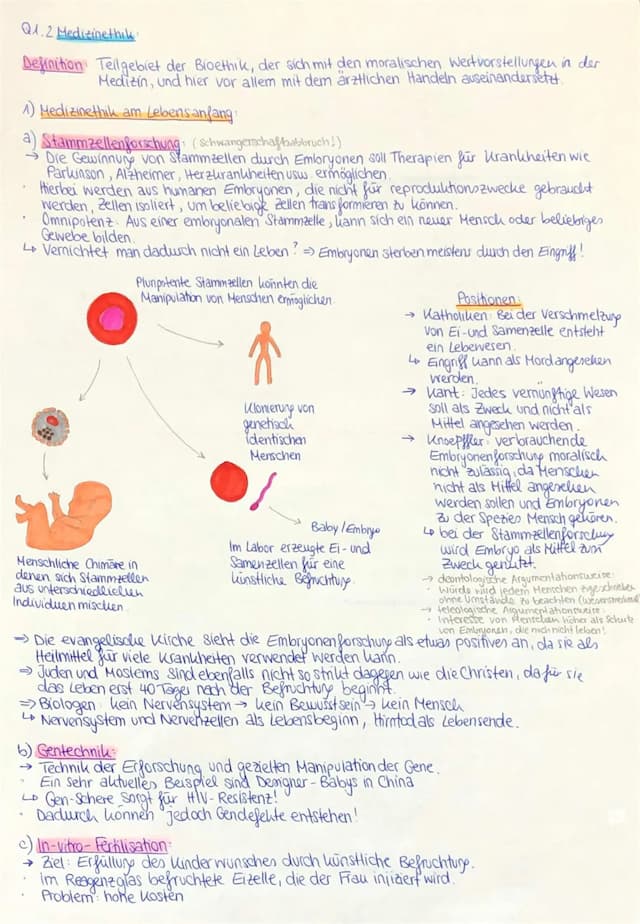 Q1.2 Medizinethik:
Definition: Teilgebiet der Bioethik, der sich mit den moralischen Wertvorstellungen in der
Medizin, und hier vor allem mit dem ärztlichen Handeln auseinandersetzt.
1) Medizinethik am Lebensanfang:
a) Stammzellenforschung: (Schwangerschaftsabbruch!)
→ Die Gewinnung von Stammzellen durch Embryonen soll Therapien für Krankheiten wie
Parkinson, Alzheimer, Herzkrankheiten usw. ermöglichen.
· Hierbei werden aus humanen Embryonen, die nicht für reproduktionszwecke gebraucht
werden, Zellen isoliert, um beliebige Zellen transformieren zu können.
· Omnipotenz: Aus einer embryonalen Stammzelle, kann sich ein neuer Mensch oder beliebiges
Gewebe bilden.
↳ Vernichtet man dadurch nicht ein Leben? ⇒ Embryonen sterben meistens durch den Eingriff!
Pluripotente Stammzellen könnten die
Manipulation von Menschen ermöglichen.
Klonierung von
genetisch
identischen
Menschen
Baby/Embryo
Im Labor erzeugte Ei- und
Samenzellen für eine
künstliche Befruchtung.
Menschliche Chimäre in
denen sich Stammzellen
aus unterschiedlichen
Individuen mischen.
Positionen:
→ Katholiken: Bei der Verschmelzung
von Ei- und Samenzelle entsteht
ein Lebewesen.
↳ Eingriff kann als Mord angesehen
werden.
→ Kant: Jedes vernünftige Wesen
soll als Zweck und nicht als
Mittel angesehen werden.
→ Knoepffler: verbrauchende
Embryonenforschung moralisch
nicht zulässig, da Menschen
nicht als Mittel angesehen
werden sollen und Embryonen
zu der Spezies Mensch gehören.
↳ bei der Stammzellenforschung
wird Embryo als Mittel zum
Zweck genutzt.
→ deontologische Argumentationsweise:
· Würde wird jedem Menschen zugeschrieben
ohne Umstände zu beachten
→ teleologische Argumentationsweise:
· Interesse von Menschen höher als Schutz
von Embryonen, die noch nicht leben!
⇒ Die evangelische Kirche sieht die Embryonenforschung als etwas positives an, da sie als
Heilmittel für viele Krankheiten verwendet werden kann.
⇒ Juden und Moslems sind ebenfalls nicht so strikt dagegen wie die Christen, da für sie
das Leben erst 40 Tage nach der Befruchtung beginnt.
⇒ Biologen: kein Nervensystem → kein Bewusstsein → kein Mensch
↳ Nervensystem und Nervenzellen als Lebensbeginn, Hirntod als Lebensende.
b) Gentechnik:
→ Technik der Erforschung und gezielten Manipulation der Gene.
· Ein sehr aktuelles Beispiel sind Designer-Babys in China
↳ Gen-Schere sorgt für HIV-Resistenz!
· Dadurch können jedoch Gendefekte entstehen!
c) In-vitro-Fertilisation:
→ Ziel: Erfüllung des Kinderwunsches durch künstliche Befruchtung.
· im Reagenzglas befruchtete Eizelle, die der Frau injiziert wird.
· Problem: hohe Kosten